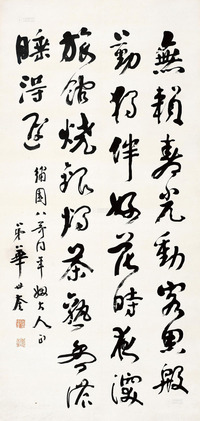 無賴春光動客思殷
勤獨伴好花時夜深
旅館燒銀燭茶熟香
睡得遲
八哥同年姻大人正
弟華世奎